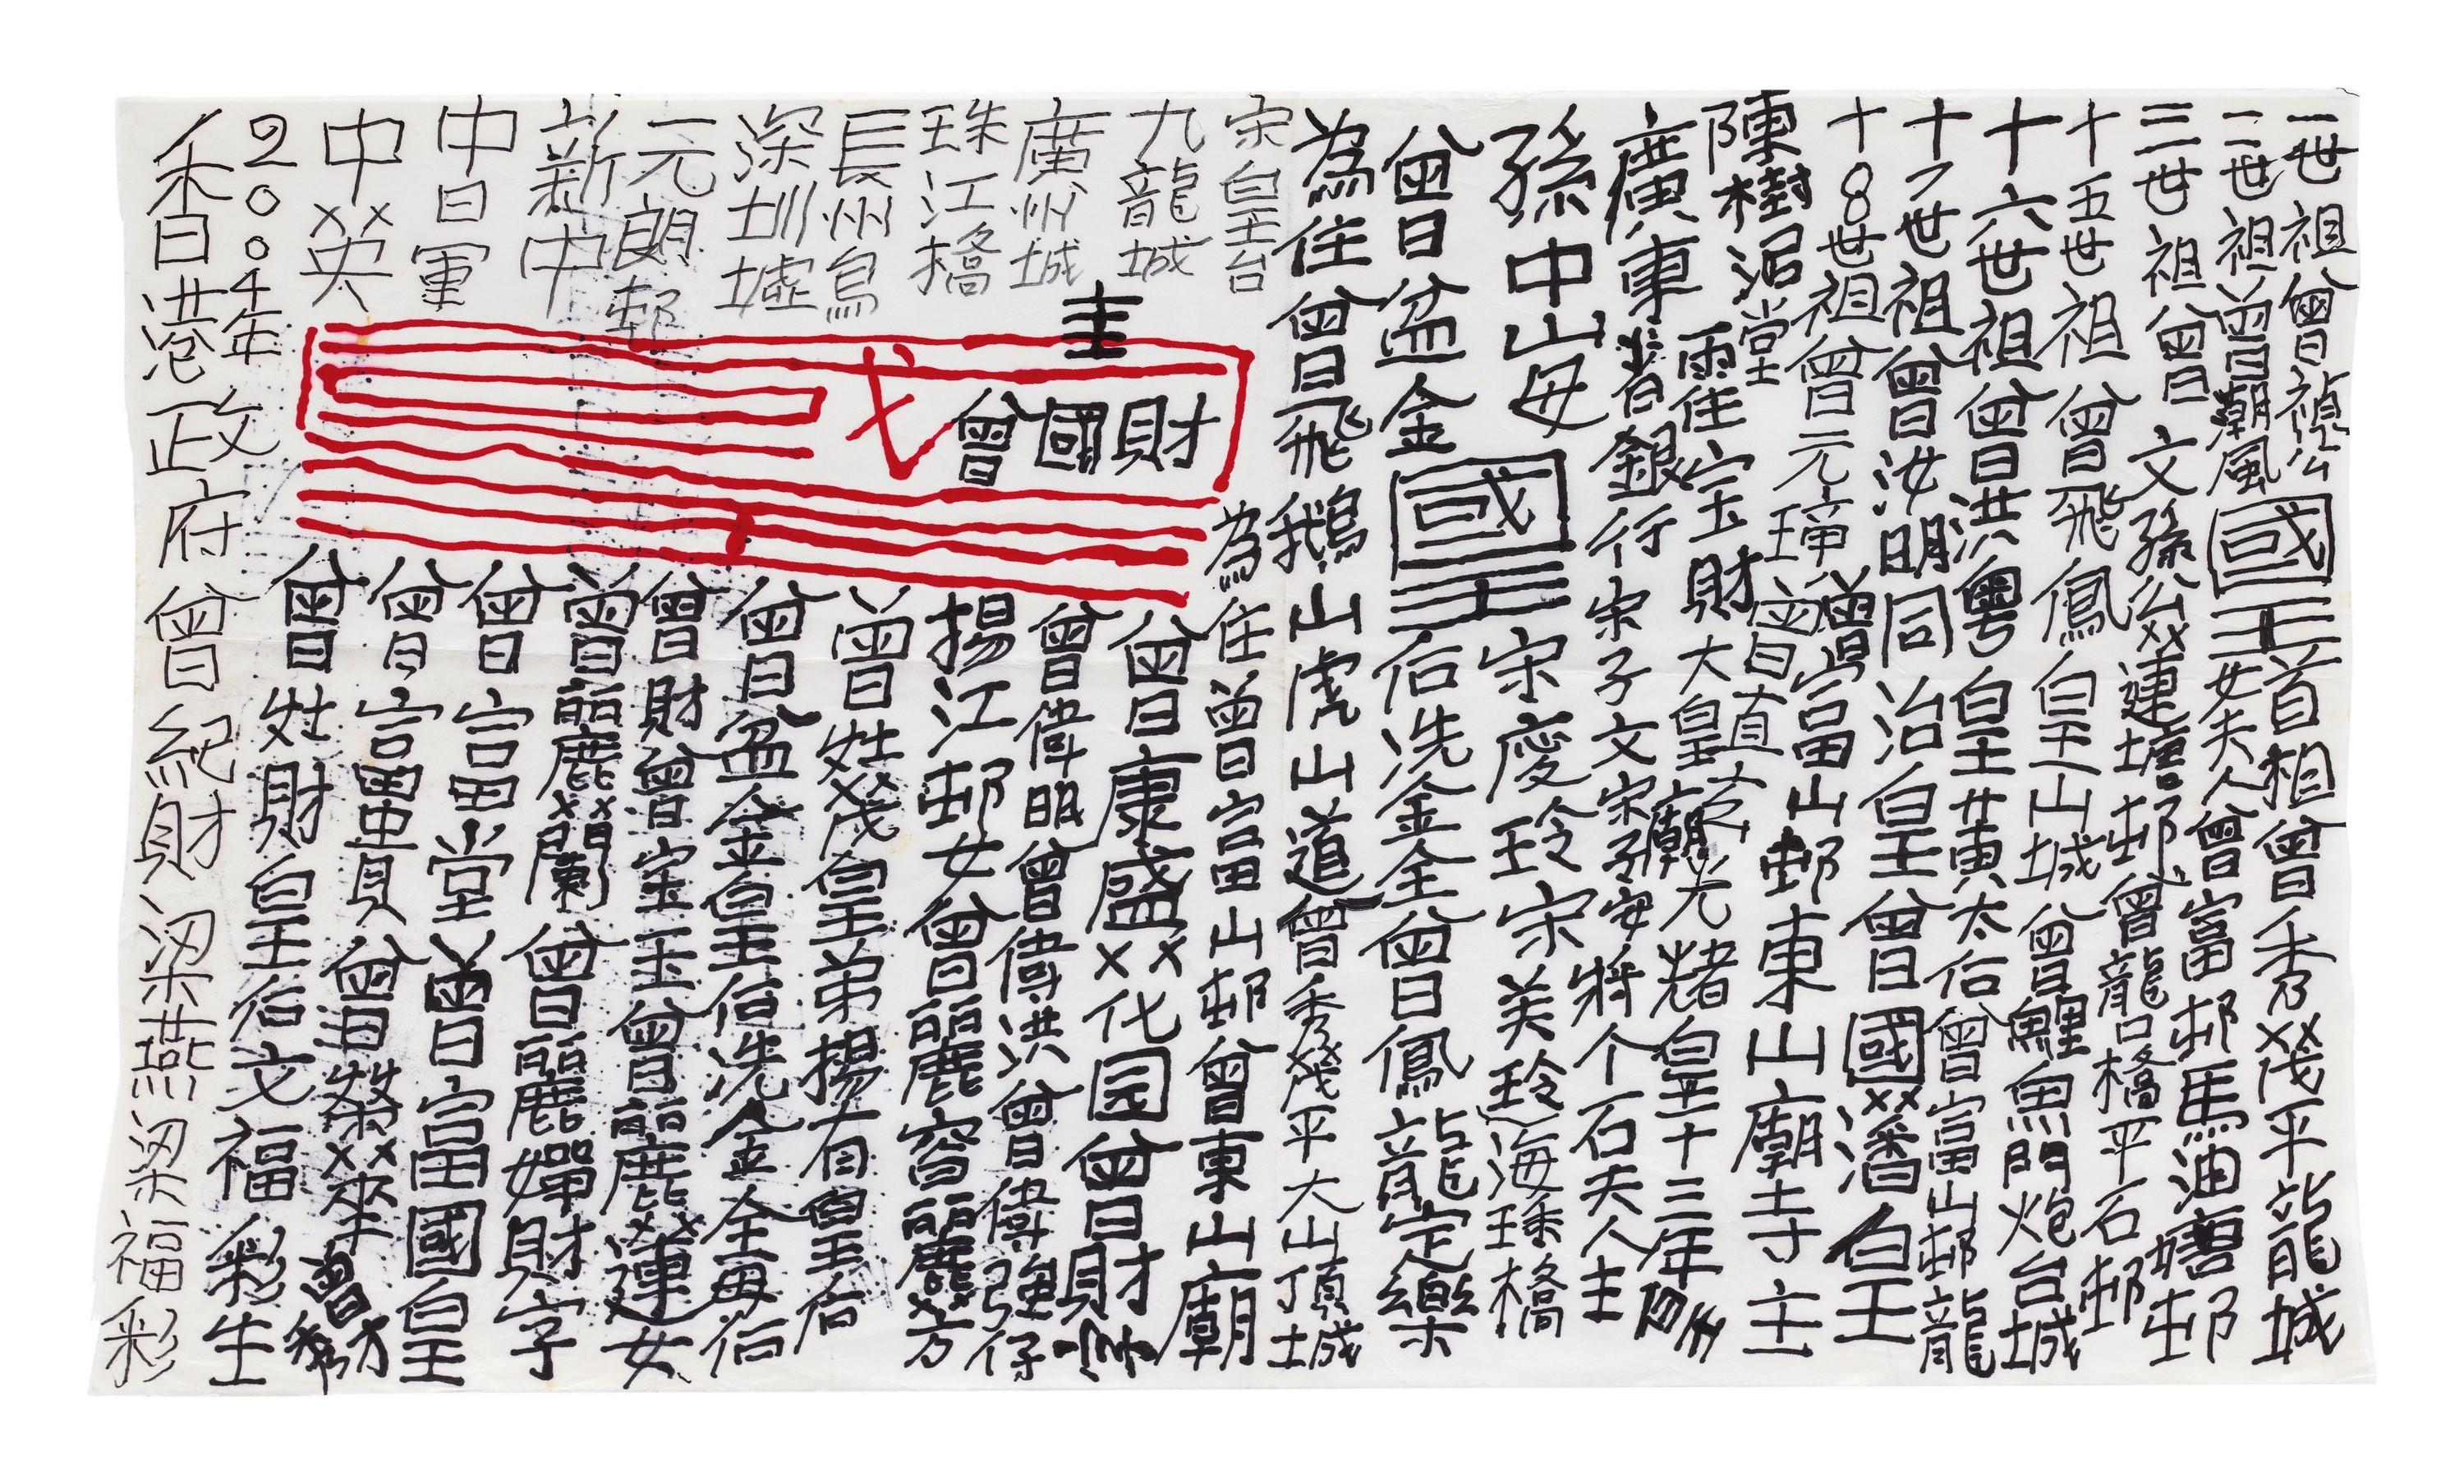 一世祖曾禎公國王首相曾秀茂平龍城
二世祖曾潮風國王女夫人曾富邨馬油塘邨
三世祖曾文孫公蓮塘邨曾龍口橋平石邨
十五世祖曾飛鳳皇山城曾鯉魚門炮台城
十六世祖曾洪粵皇黃太后曾富山邨龍
十7世祖曾汝明同治皇曾國潘皇
十8世祖曾元璋曾富山邨東山廟寺主
陳樹滔堂曾直
霍佳宝財大皇廟光楮皇十三年
廣東銀行宋子文宋子安將个石夫人主
孫中山母宋慶玲宋美玲海珠橋
曾盆金國王后冼金全曾鳳龍定樂
為住曾飛鵝山虎山道曾秀茂平大山頂城
宋皇台
為住曾富山邨曾東山廟
九龍城
廣州城
珠江橋
長州島
深圳墟
元朗邨
新中
中日軍
中英
主
財
國
曾
曾康盛化园曾財
曾偉明曾偉洪曾偉強仔
揚江邨女曾麗容麗芳
曾姓茂皇弟揚有皇后
曾盆金皇后冼金全母后
曾財曾宝玉曾麗蓮女
曾麗蘭曾麗嬋財字
曾富堂曾富國皇
曾富貴曾榮華曾財
曾姓財皇后文福彩生
2004年
香港政府曾紀財梁燕梁福彩